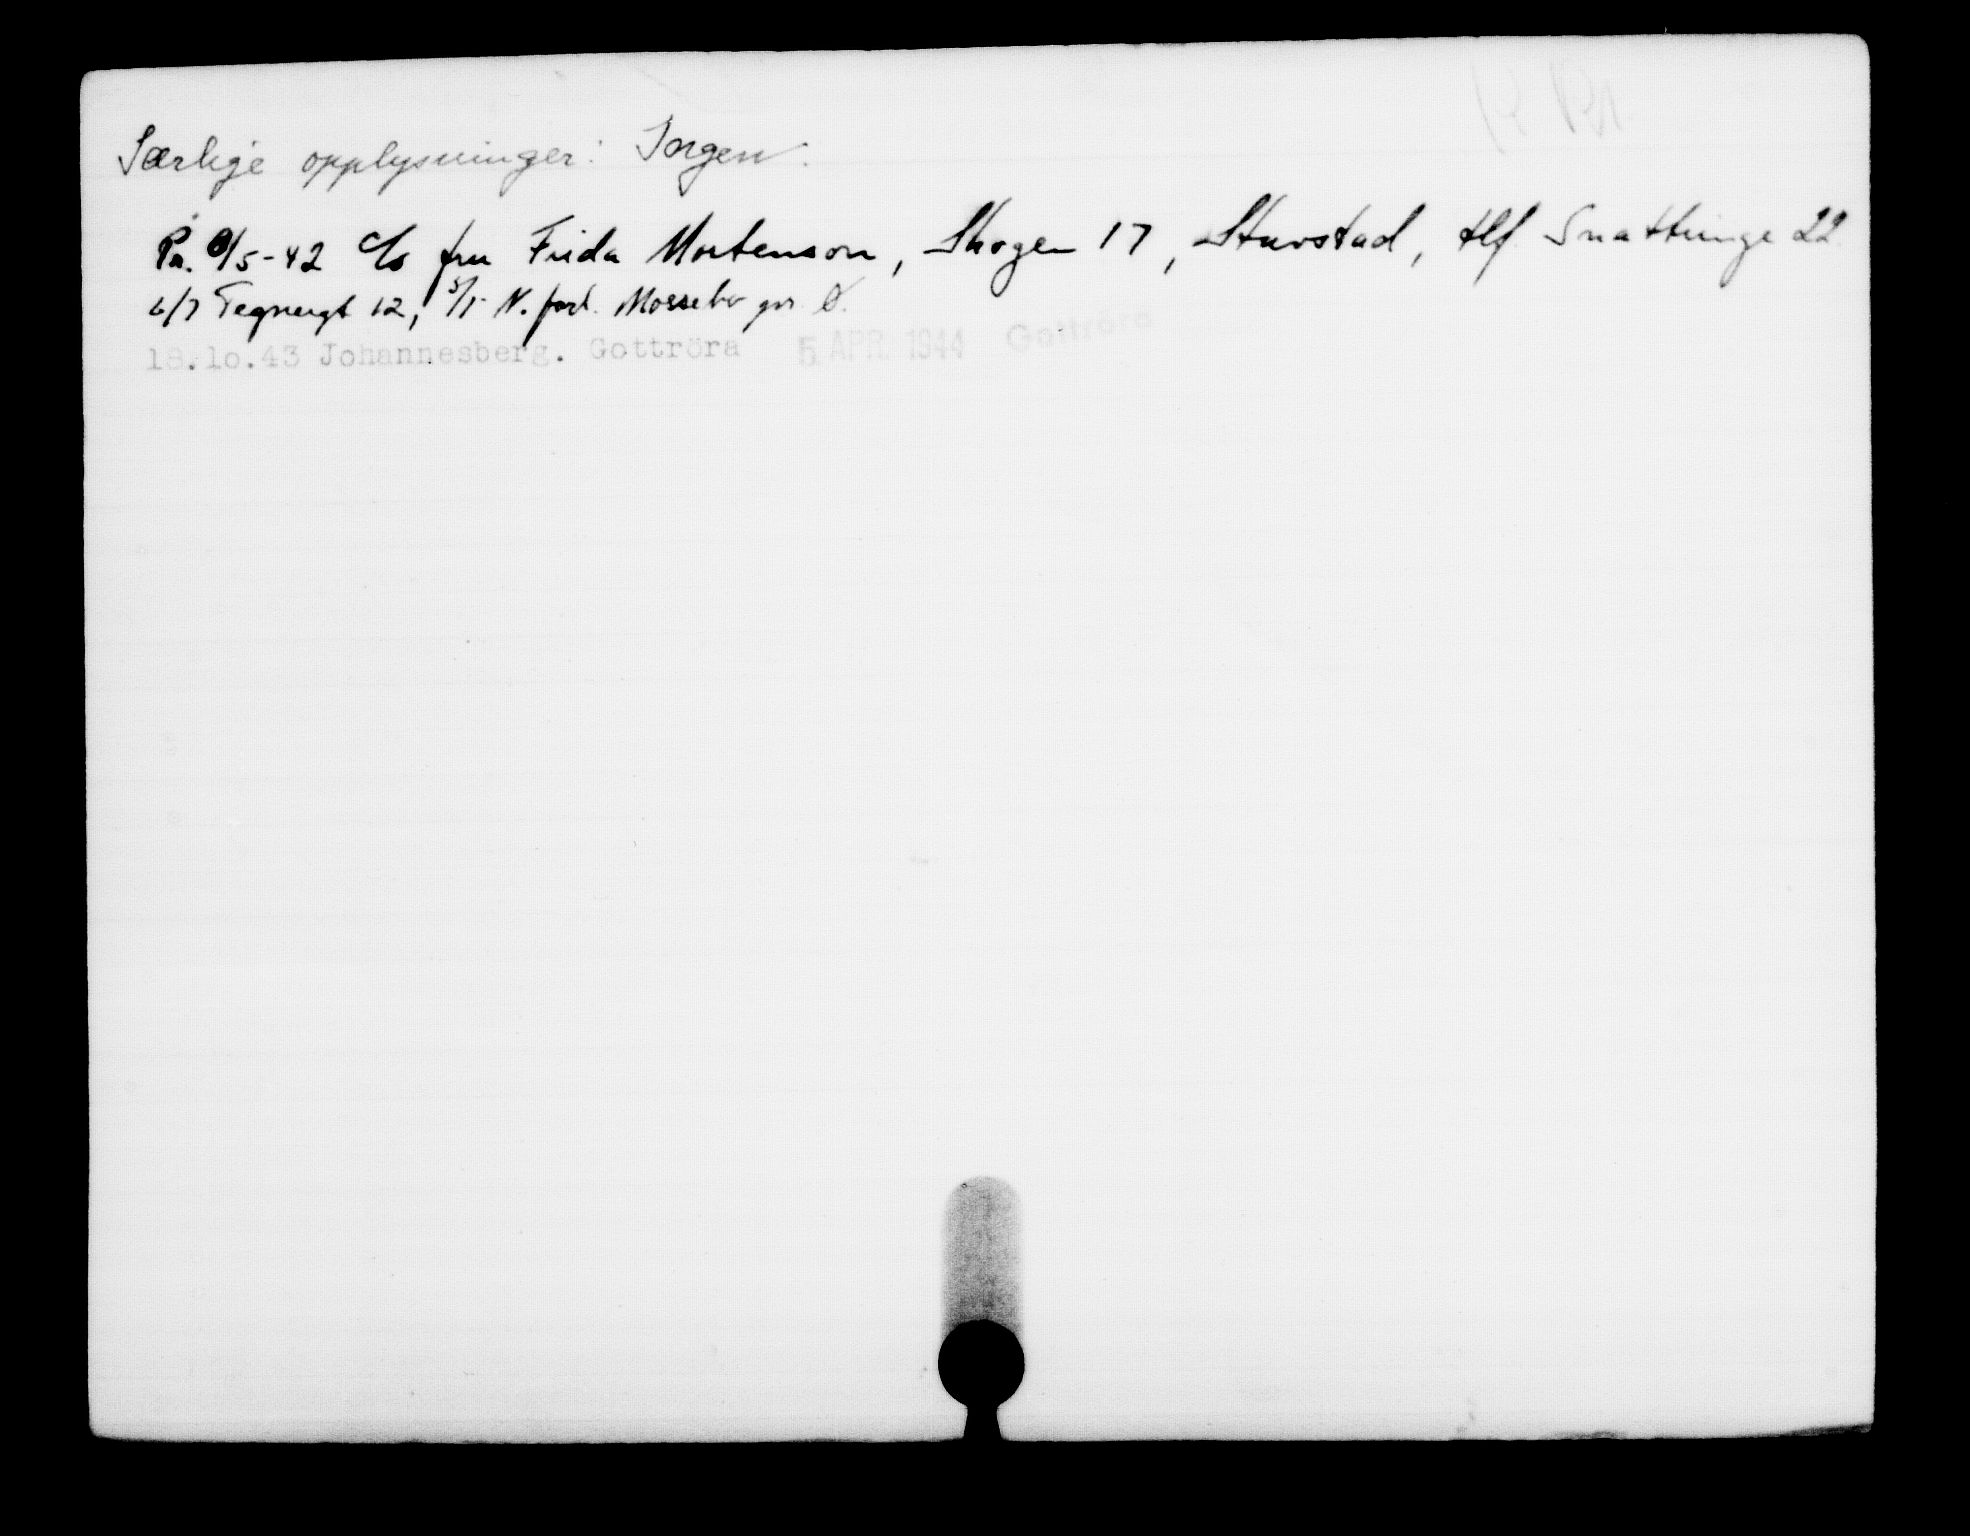 Særlige opplysninger: Ingen.
Pr. 8/5-42 c/o fru Frida Mortenson, Skogen 17, Sturstad, tlf. Snattringe 22.
6/7 Tegnergt 12, 5/1 N. ford. Mossebo gr.
18.10.43 Johannesberg. Gottröra 5 APR. 1944 Gottröra